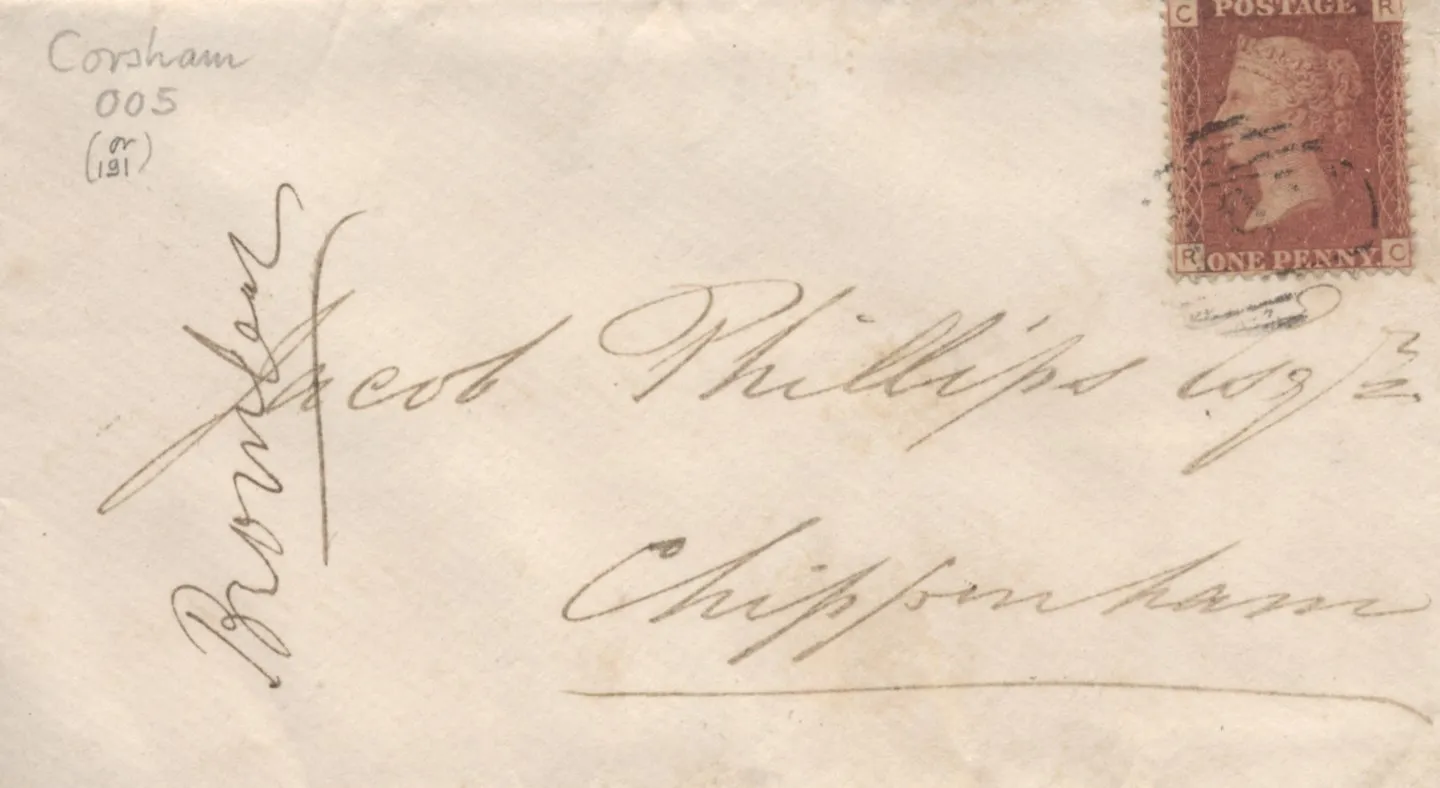 Corsham
005
(or
191)
C POSTAGE R
R ONE PENNY. C
Jacob Phillips Esq
Chippenham